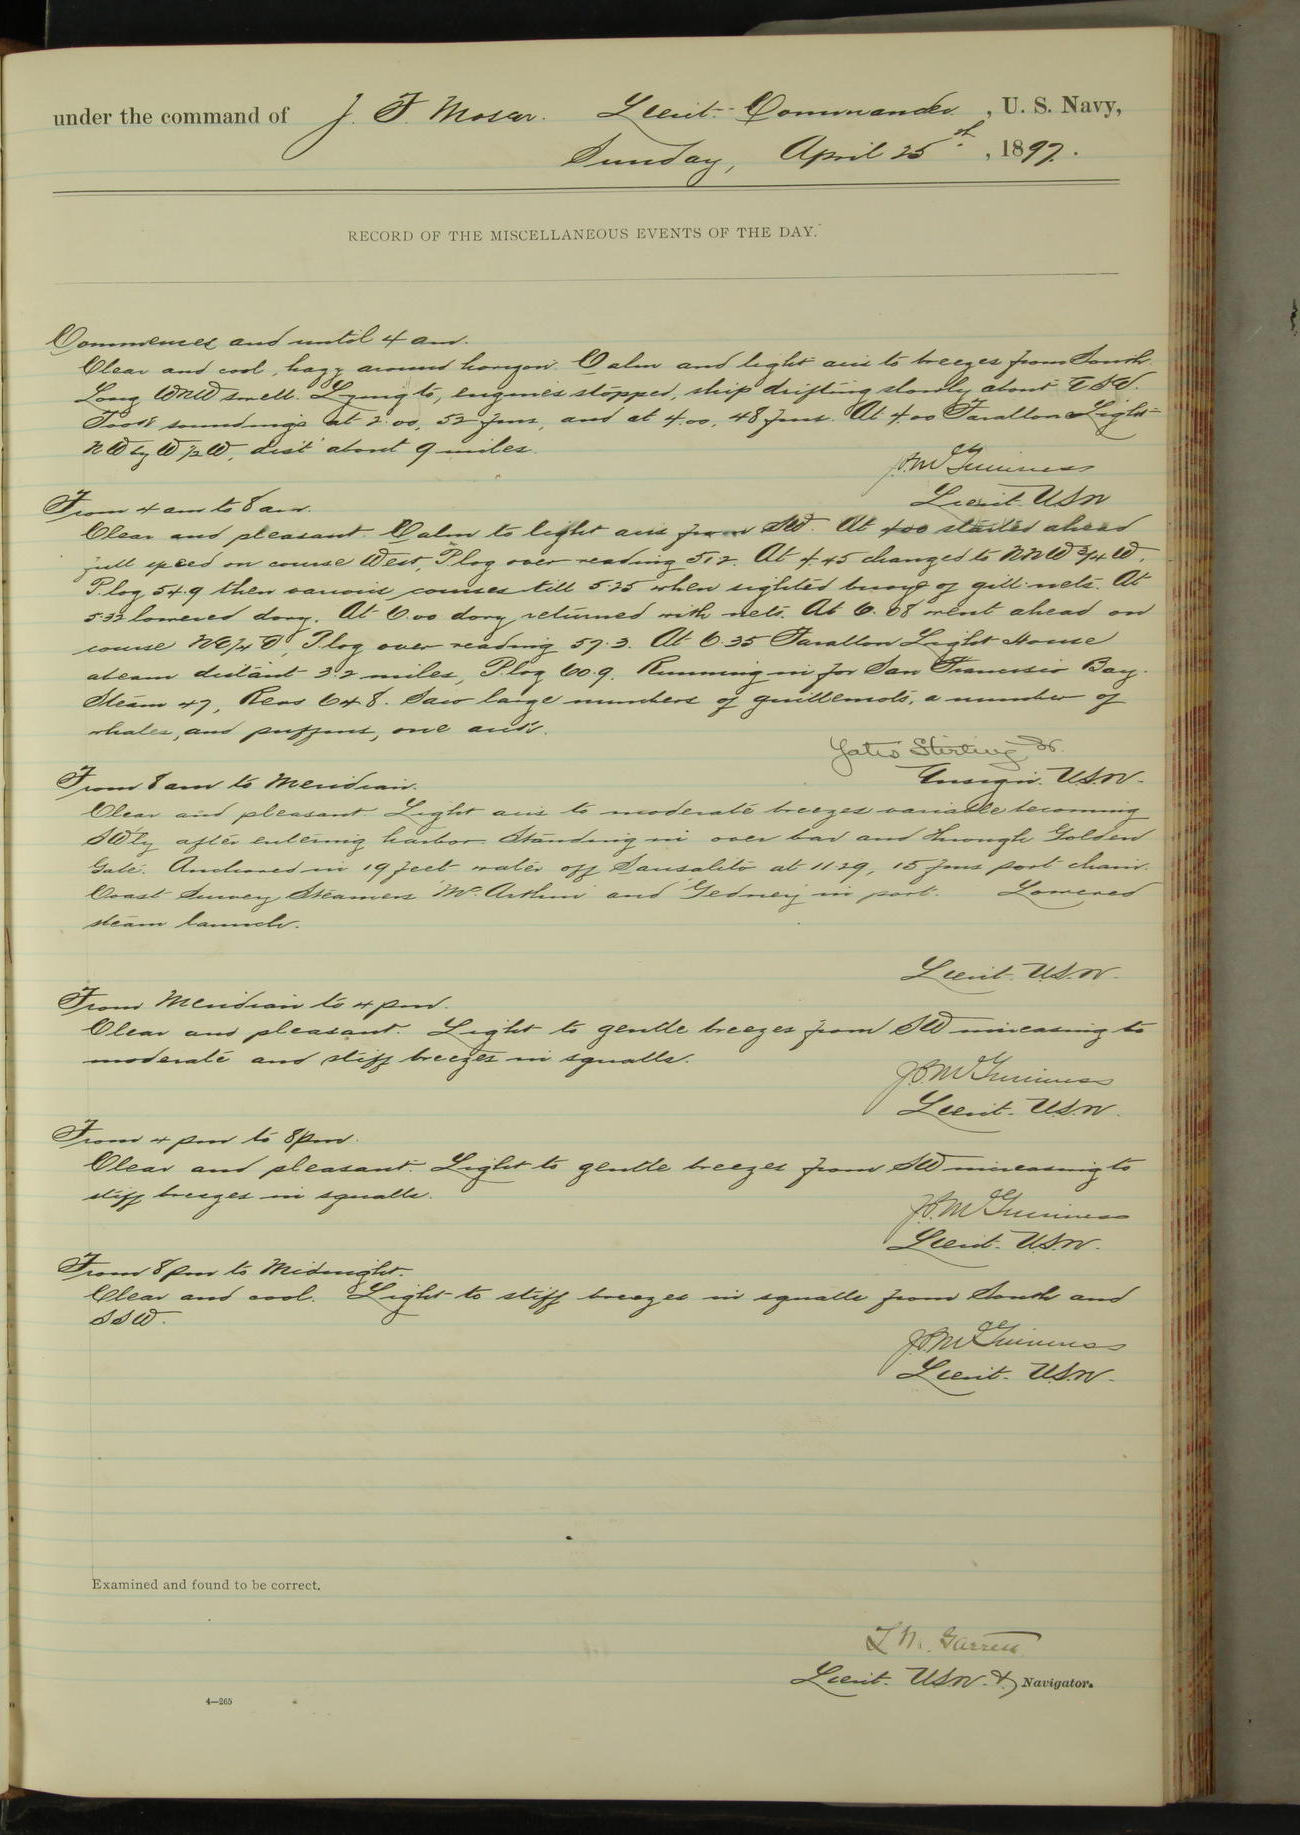 under the command of J. F. Moser. Lieut-Commander, U. S. Navy,
Sunday, April 25th, 1897.
RECORD OF THE MISCELLANEOUS EVENTS OF THE DAY.
Commences and until 4 am.
Clear and cool, hazy around horizon. Calm and light airs to breezes from South.
Long WNW swell. Lying to, engines stopped, ship drifting slowly about
Took soundings at 2.00, 52 fms, and at 4.00, 48 fms. At 4.00 Farallon Light-
NW by W ½ W, dist about 9 miles.
Lieut. USN
From 4 am to 8 am.
Clear and pleasant. Calm to light airs from SW. At 400 started ahead
full speed on course West, P log over reading 51.2. At 4.45 changed to NNW ¾ W,
P. log 54.9 then various courses till 5.25 when sighted buoys of gill-nets. At
5.32 lowered dory. At 6.00 dory returned with nets. At 6.08 went ahead on
course P log over reading 57.3. At 6.35 Farallon Light House
abeam distant 3.2 miles, P. log 60.9. Running in for San Francisco Bay.
Steam 47, Revs 64.8. Saw large numbers of guillemots, a number of
whales, and puffins, one auk.
Yates Stirling Jr.
Ensign. U.S.N.
From 8 am to Meridian.
Clear and pleasant. Light airs to moderate breezes variable becoming
SW'ly after entering harbor. Standing in over bar and through Golden
Gate. Anchored in 19 feet water off Sausalito at 11.29, 15 fms port chain.
Coast Survey Steamers "McArthur" and "Gedney" in port. Lowered
steam launch.
Lieut. U.S.N.
From Meridian to 4 pm.
Clear and pleasant. Light to gentle breezes from SW increasing to
moderate and stiff breezes in squalls.
Lieut. U.S.N.
From 4 pm to 8 pm.
Clear and pleasant. Light to gentle breezes from SW increasing to
stiff breezes in squalls.
Lieut. U.S.N.
From 8 pm to Midnight.
Clear and cool. Light to stiff breezes in squalls from South and
SSW.
Lieut. U.S.N.
Examined and found to be correct.
L M. Garrett
Lieut. USN. & Navigator.
4—265